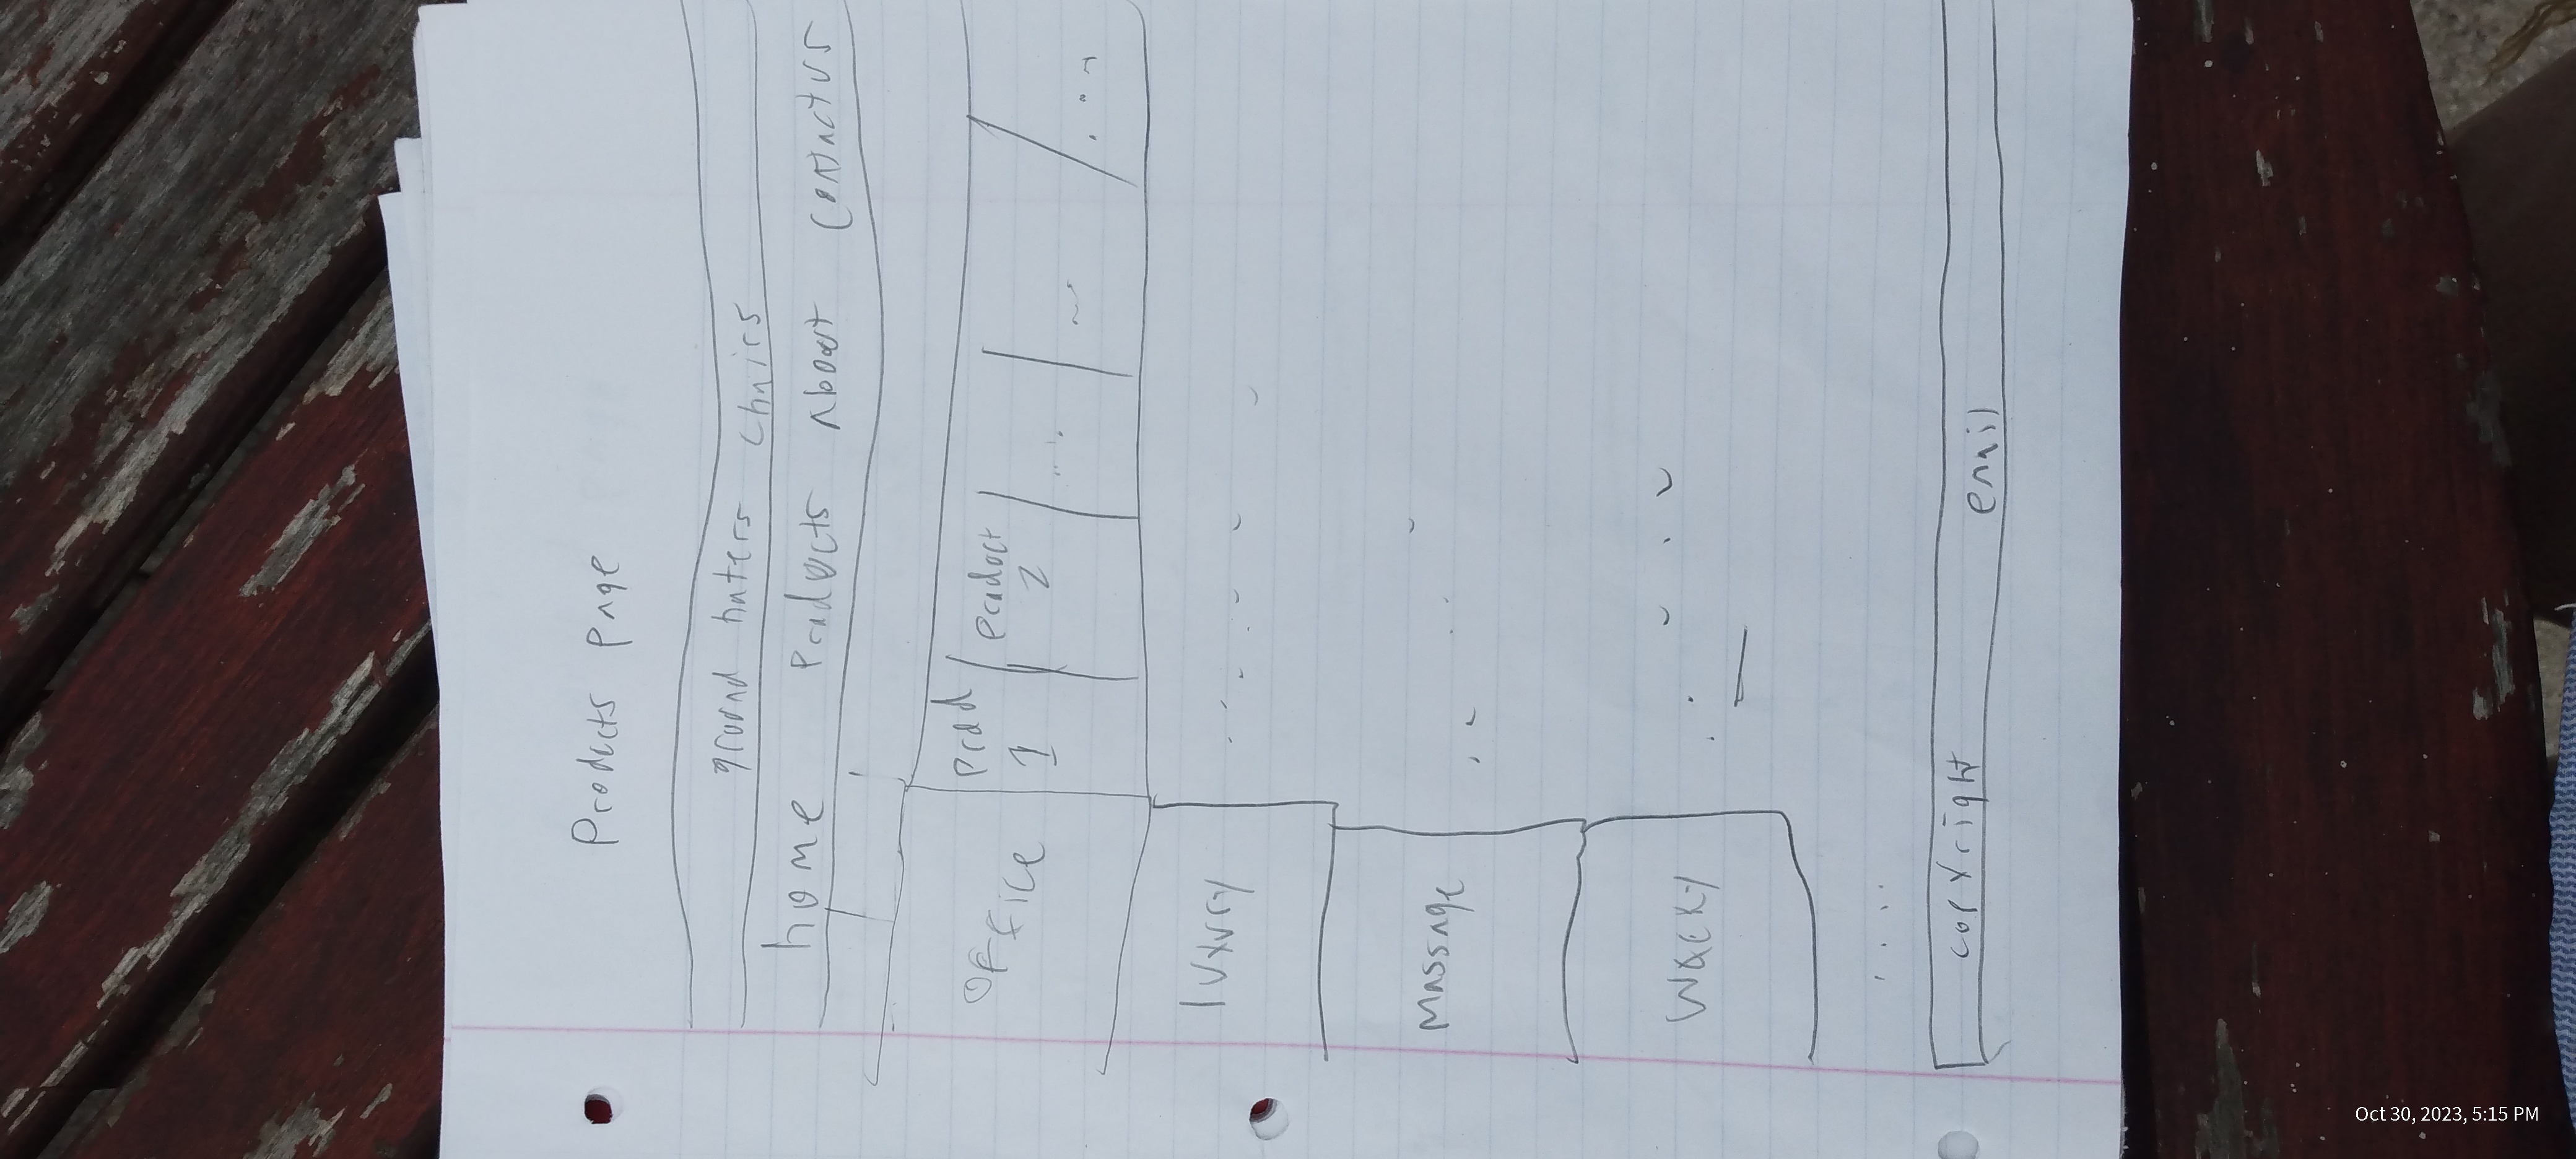 Products Page
ground haters chairs
home Products About contact us
office Prod 1 Product 2
luxury
massage
wacky
copyright email
Oct 30, 2023, 5:15 PM